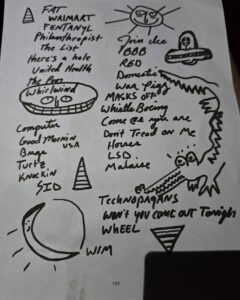 FAT
WALMART
FENTANYL
Philanthropist
The List
Here's a hole
United Health
The
Whirlwind
Join Ice
BBB
RED
Domestic
War Pigs
MASKS OFF
Whistle Boeing
Come as you are
Don't Tread on Me
Horses
LSD
Malaise
Computer
Good Mornin
USA
Bugs
Turtz
Knockin
SID
TECHNOPAGANS
WON'T YOU COME OUT Tonight
WHEEL
WIM
107